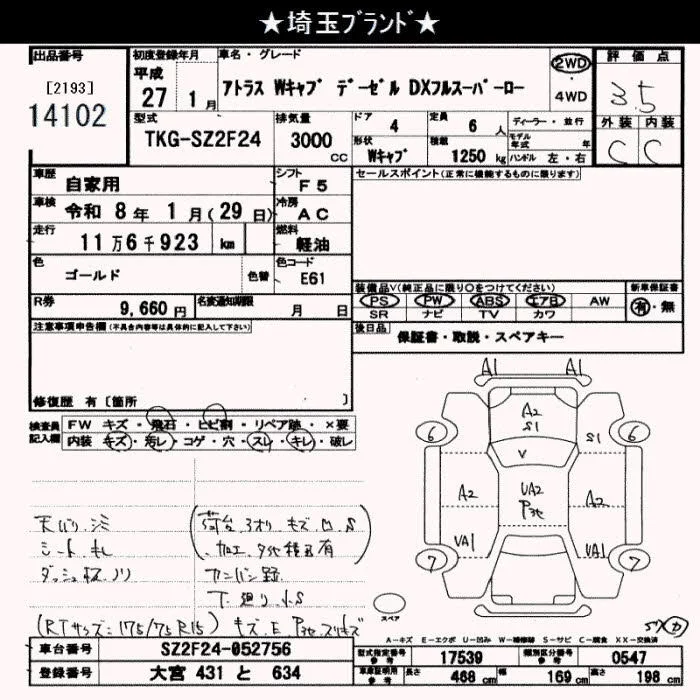 ★埼玉ﾌﾞﾗﾝﾄﾞ★
出品番号
[2193]
14102
初度登録年月
平成
27 年 1 月
車名・グレード
アトラス Wキャブ デーゼル DXフルスーパーロー
2WD
4WD
評価点
3.5
外装 内装
C C
型式
TKG-SZ2F24
排気量
3000 CC
ドア 4
定員 6 人
形状 Wキャブ
積載 1250 kg
ディーラー・並行
モデル年式 年
ハンドル 左・右
車歴 自家用
シフト F5
セールスポイント(正常に機能するものに限ります)
車検 令和 8 年 1 月(29 日)
冷房 AC
走行 11万6千923 km
燃料 軽油
色 ゴールド 色替
色コード E61
装備品∨(純正品に限り○をつけてください)
新車保証書
PS PW ABS エアB AW
有・無
SR ナビ TV カワ
R券 9,660 円
名変通知期限 月 日
後日品 保証書・取説・スペアキー
注意事項申告欄(不具合内容等は具体的に記入して下さい)
修復歴 有〔箇所 〕
検査員記入欄
FW キズ・飛石・ヒビ割・リペア跡・×要
内装 キズ・汚レ・コゲ・穴・スレ・キレ・破レ
天バリ シミ
シート キレ
ダッシュ
荷台 3オリ キズ 凹 S
カンバン
下廻り 小S
(RTサイズ:175/75R15)
A1 A1
A2
S1
S1
6 6
V
A2
UA2
A2
VA1
VA1
7 7
スペア
A-キズ E-エクボ U-凹み W-補修跡 S-サビ C-腐食 XX-交換済
車台番号 SZ2F24-052756
登録番号 大宮 431 と 634
型式指定番号 参考 17539
類別区分番号 参考 0547
車庫証明用 参考
長さ 468 cm
幅 169 cm
高さ 198 cm